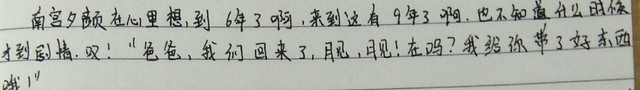 南宫夕颜在心里想到6年了啊,来到这有9年了啊.也不知道什么时候
才到剧情.哎!"爸爸,我们回来了,月见,月见!在吗?我给你带了好东西
哦!"